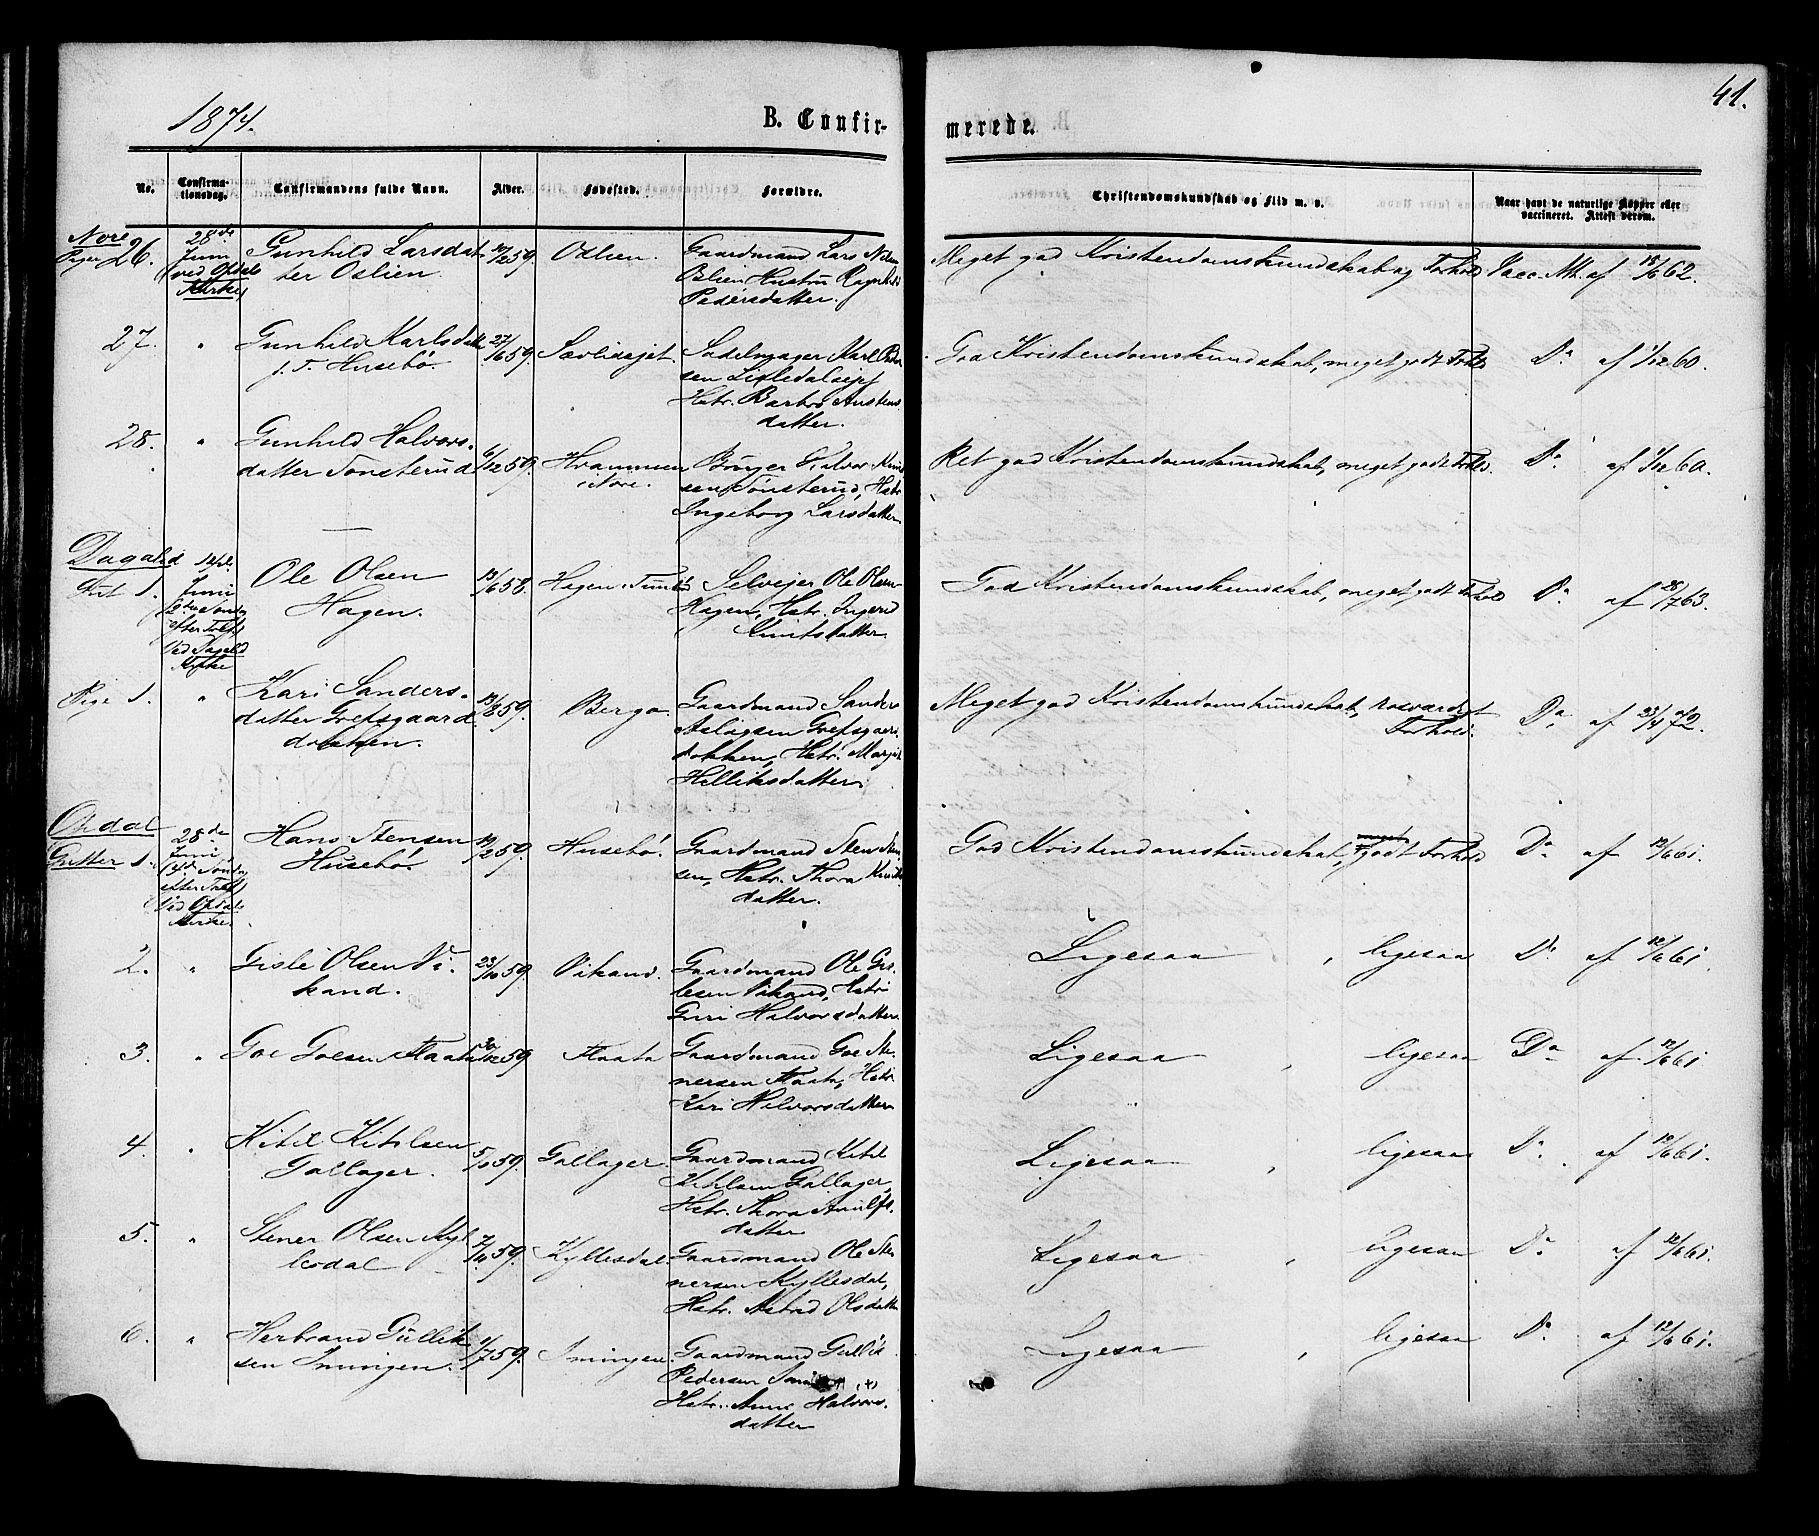 1874.
B. Confir-
merede.
41.
No.
Confirma-
tionsdag.
Confirmandens fulde Navn.
Alder.
Fødested.
Forældre.
Christendomskundskab og Flid m. v.
Naar havt de naturlige Kopper eller
vaccineret. Attest derom.
Nore
Piger 26.
28de
Juni
ved Opdals
Kirke
Gunhild Larsdat-
ter Oslien
59.
Oslien.
Gaardmand Lars
Hustru Ragnhild
Pedersdatter.
Meget god Kristendomskundskab og Forhold
Vacc. Att. af 15/6 62.
27.
"
Gunhild Karlsdatt
p. T. Husebø.
27/6 59.
Sadelmager Karl
sen
Hstr. Barbro Austens-
datter.
God Kristendomskundskab, meget godt Forhold
Do af 1/12 60.
28.
"
Gunhild Halvors-
datter Tønsterud
6/12 59.
Hvammen
i Nore.
Halvor Knut-
sen Tønsterud, Hstr
Ingeborg Larsdatter
Ret god Kristendomskundskab, meget godt Forhold.
Do af 1/12 60.
Dagalid
Gut 1.
14de
Juni
2den Sønd
efter Tref.
ved Dagalid
Kirke
Ole Olsen
Hagen.
13/6 58.
Hagen
Selvejer Ole Olsen
Hagen, Hstr. Ingerid
Knutsdatter
God Kristendomskundskab, meget godt Forhold
Do af 28/7 63.
Pige 1.
"
Kari Sanders-
datter Grefsgaard
dokken.
13/8 59.
Bergo.
Gaardmand Sander
Aslagsen Grefsgaard-
dokken, Hstr. Margit
Helliksdatter.
Meget god Kristendomskundskab, rosværdigt
Forhold.
Do af 23/4 72.
Opdal
Gutter 1.
28de
Juni
4de Sønda
efter Tref.
ved Opdals
Kirke.
Hans Stensen
Husebø.
59.
Husebø.
Gaardmand Sten
sen, Hstr. Thora Knuts-
datter.
God Kristendomskundskab, godt Forhold
Do af 12/6 61.
2.
"
Gisle Olsen Vi-
kand.
23/10 59.
Vikand.
Gaardmand Ole Gis-
lesen Vikand, Hstr
Guri Halvorsdatter.
Ligesaa, ligesaa
Do af 12/6 61.
3.
"
Goe Goesen Staata
30/12 59.
Staata
Gaardmand Goe Ste-
nersen Staata, Hstr
Kari Halvorsdatter
Ligesaa, ligesaa
Do af 12/6 61.
4.
"
Kitil Kitilsen
Gallager.
5/10 59.
Gallager.
Gaardmand Kitil
Kitilsen Gallager,
Hstr. Thora Arnulfs-
datter
Ligesaa, ligesaa
Do af 12/6 61.
5.
"
Stener Olsen Kyl-
lesdal
7/11 59.
Kyllesdal.
Gaardmand Ole Ste-
nersen Kyllesdal,
Hstr. Astrid Olsdatter
Ligesaa, ligesaa
Do af 12/6 61.
6.
"
Herbrand Gullik-
sen Smingen.
1/7 59.
Smingen.
Gaardmand Gullik
Pedersen
Hstr. Anne Halvors-
datter
Ligesaa, ligesaa
Do af 12/6 61.